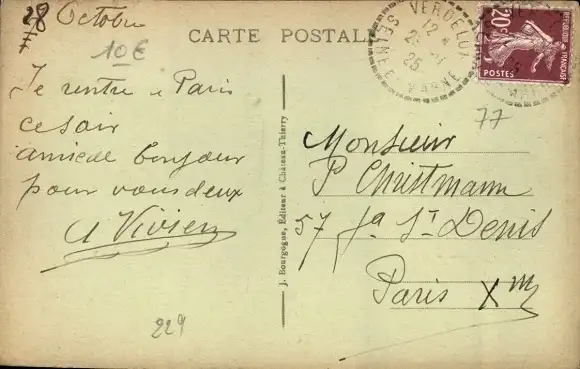 28 Octobre
10 €
Je rentre à Paris
ce soir
amical bonjour
pour vous deux
A Vivien
229
CARTE POSTALE
J. Bourgogne, Éditeur à Château-Thierry
VERDELOT
12
25
SEINE ET MARNE
20c
REPUBLIQUE FRANÇAISE
POSTES
77
Monsieur
P Christmann
57 fg St Denis
Paris Xm